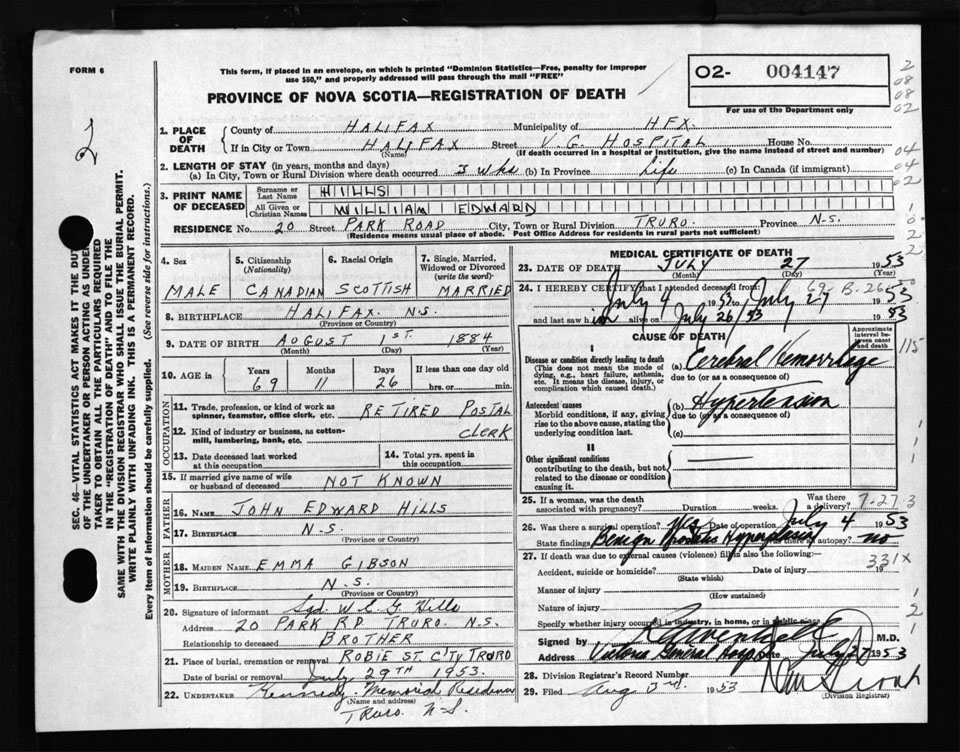 FORM 6
This form, if placed in an envelope, on which is printed "Dominion Statistics—Free, penalty for improper
use $50," and properly addressed will pass through the mail "FREE"
PROVINCE OF NOVA SCOTIA—REGISTRATION OF DEATH
02- 004147
For use of the Department only
2
08
08
02
04
04
02
2
SEC. 46—VITAL STATISTICS ACT MAKES IT THE DUTY
OF THE UNDERTAKER OR PERSON ACTING AS UNDER-
TAKER TO OBTAIN ALL THE PARTICULARS REQUIRED
IN THE "REGISTRATION OF DEATH" AND TO FILE THE
SAME WITH THE DIVISION REGISTRAR WHO SHALL ISSUE THE BURIAL PERMIT.
WRITE PLAINLY WITH UNFADING INK. THIS IS A PERMANENT RECORD.
Every item of information should be carefully supplied. (See reverse side for instructions.)
1. PLACE OF DEATH
County of HALIFAX Municipality of HFX.
If in City or Town HALIFAX Street V.G. HOSPITAL House No.
(Name) (If death occurred in a hospital or institution, give the name instead of street and number)
2. LENGTH OF STAY (in years, months and days)
(a) In City, Town or Rural Division where death occurred 3 wks (b) In Province Life (c) In Canada (if immigrant)
3. PRINT NAME OF DECEASED
Surname or Last Name HILLS
All Given or Christian Names WILLIAM EDWARD
RESIDENCE No. 20 Street PARK ROAD City, Town or Rural Division TRURO. Province N.S.
(Residence means usual place of abode. Post Office Address for residents in rural parts not sufficient)
4. Sex
MALE
5. Citizenship (Nationality)
CANADIAN
6. Racial Origin
SCOTTISH
7. Single, Married, Widowed or Divorced (write the word)
MARRIED
8. BIRTHPLACE HALIFAX N.S.
(Province or Country)
9. DATE OF BIRTH AUGUST 1st. 1884
(Month) (Day) (Year)
10. AGE in Years Months Days If less than one day
69 11 26 hrs. or min.
OCCUPATION
11. Trade, profession, or kind of work as spinner, teamster, office clerk, etc. RETIRED POSTAL
12. Kind of industry or business, as cotton-mill, lumbering, bank, etc. CLERK
13. Date deceased last worked at this occupation
14. Total yrs. spent in this occupation
15. If married give name of wife or husband of deceased NOT KNOWN
FATHER
16. NAME JOHN EDWARD HILLS
17. BIRTHPLACE N.S.
(Province or Country)
MOTHER
18. MAIDEN NAME EMMA GIBSON
19. BIRTHPLACE N.S.
(Province or Country)
20. Signature of informant Sgd. W.C.G. Hills
Address 20 PARK RD. TRURO. N.S.
Relationship to deceased BROTHER
21. Place of burial, cremation or removal ROBIE ST. C'TY TRURO
Date of burial or removal July 29TH 1953.
22. UNDERTAKER Kennedy Memorial Residence
(Name and address)
Truro. N-S.
MEDICAL CERTIFICATE OF DEATH
23. DATE OF DEATH JULY 27 1953
(Month) (Day) (Year)
69-B-26
24. I HEREBY CERTIFY that I attended deceased from:
July 4 1953 to July 27 1953
and last saw him alive on July 26/53 1953
CAUSE OF DEATH
Approximate interval between onset and death
I
Disease or condition directly leading to death
(This does not mean the mode of dying, e.g., heart failure, asthenia, etc. It means the disease, injury, or complication which caused death.)
(a) Cerebral Hemorrhage
due to (or as a consequence of)
Antecedent causes
Morbid conditions, if any, giving rise to the above cause, stating the underlying condition last.
(b) Hypertension
due to (or as a consequence of)
(c)
II
Other significant conditions
contributing to the death, but not related to the disease or condition causing it.
115
25. If a woman, was the death associated with pregnancy? Duration weeks. Was there a delivery?
7-27-3
26. Was there a surgical operation? Yes Date of operation July 4 1953
State findings Benign Prostatic Hyperplasia autopsy? no
27. If death was due to external causes (violence) fill in also the following:
331X
Accident, suicide or homicide? Date of injury 19
(State which)
Manner of injury
(How sustained)
Nature of injury
Specify whether injury occurred in industry, in home, or in public place
Signed by M.D.
Address Victoria General Hosp Date July 27 1953
28. Division Registrar's Record Number
29. Filed Aug 3rd. 1953
(Division Registrar)